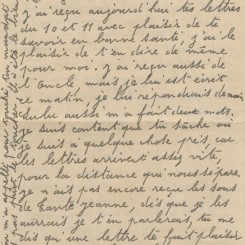 j'ai reçu aujourd'hui tes lettres
du 10 et 11 avec plaisir de te
savoir en bonne santé, j'ai le
plaisir de t'en dire de même
pour moi. J'ai reçu aussi de
l'Oncle mais je lui est écrit
ce matin, je lui repondrais demain
Lulu aussi m'a fait deux mots.
je suis content que tu sâche où
je suis à quelque chose près, car
les lettres arrivent assez vite,
pour la distance qui nous sépare
je n'ais pas encore reçu les sous
de Tante Jeanne, dès que je les
aurrais je t'en parlerais, tu me
dis qu'une lettre te fait plaisir